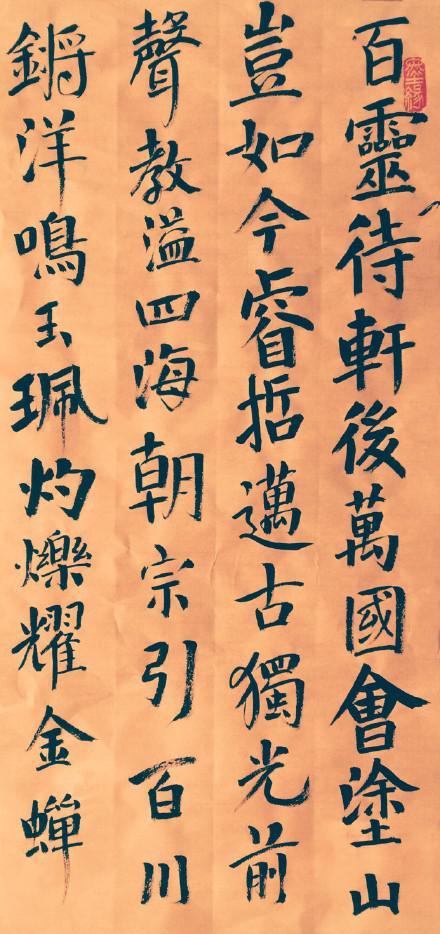 百靈待軒後萬國會塗山
豈如今睿哲邁古獨光前
聲教溢四海朝宗引百川
鏘洋鳴玉珮灼爍耀金蟬